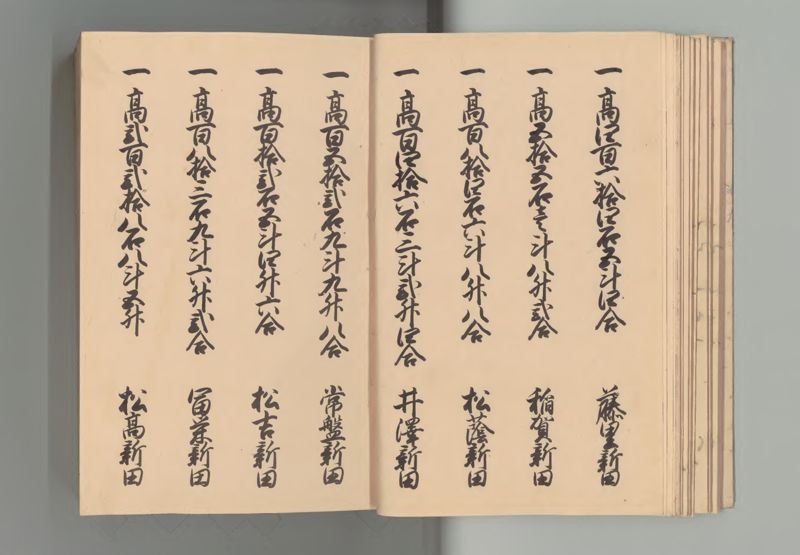 一 高四百六拾四石五斗四合 藤里新田
一 高五拾五石壱斗八升弐合 稲賀新田
一 高百八拾四石六斗八升八合 松蔭新田
一 高百四拾六石三斗弐升四合 井澤新田
一 高百五拾弐石九斗九升八合 常盤新田
一 高百拾弐石五斗四升六合 松吉新田
一 高百八拾三石九斗六升弐合 冨栄新田
一 高弐百弐拾八石八斗五升 松高新田